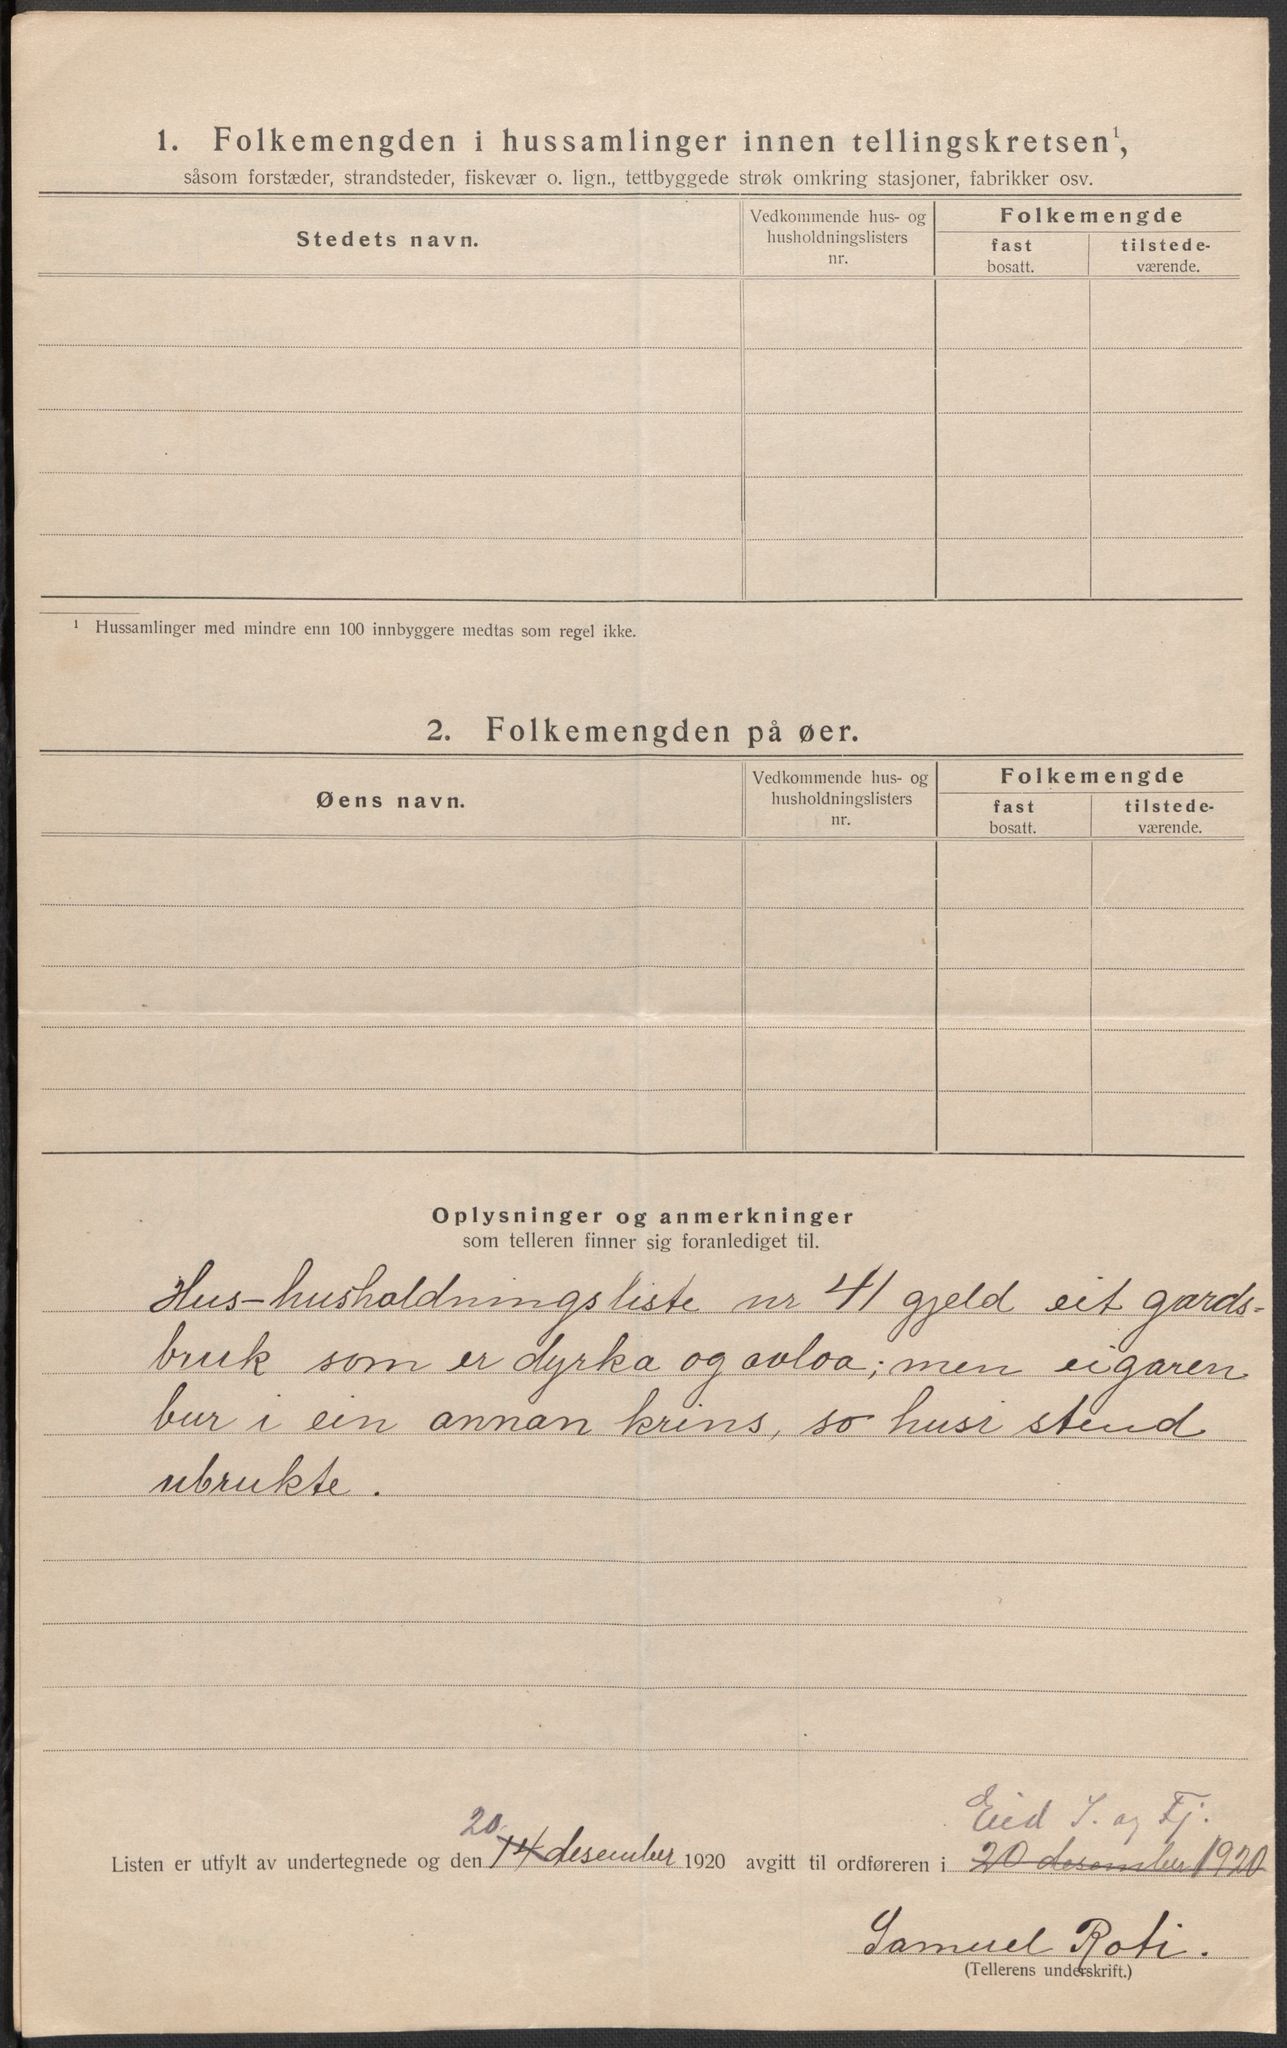 1. Folkemengden i hussamlinger innen tellingskretsen¹,
såsom forstæder, strandsteder, fiskevær o. lign., tettbyggede strøk omkring stasjoner, fabrikker osv.
Stedets navn.
Vedkommende hus- og
husholdningslisters
nr.
Folkemengde
fast
bosatt.
tilstede-
værende.
¹ Hussamlinger med mindre enn 100 innbyggere medtas som regel ikke.
2. Folkemengden på øer.
Øens navn.
Vedkommende hus- og
husholdningslisters
nr.
Folkemengde
fast
bosatt.
tilstede-
værende.
Oplysninger og anmerkninger
som telleren finner sig foranlediget til.
Hus-husholdningsliste nr 41 gjeld eit gards-
bruk som er dyrka og avloa; men eigaren
bur i ein annan krins, so husi stend
ubrukte.
Eid S. og Fj.
20.
Listen er utfylt av undertegnede og den 14 desember 1920 avgitt til ordføreren i 20 desember 1920
Samuel Roti.
(Tellerens underskrift.)